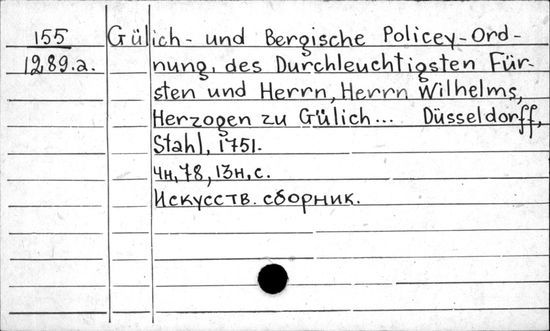 155 Gülich- und Bergische Policey-Ord-
1289.a. nung, des Durchleuchtigsten Für-
sten und Herrn, Herrn Wilhelms,
Herzogen zu Gülich... Düsseldorff,
Stahl, 1751.
4н, 78, 13н, с.
Искусств. сборник.